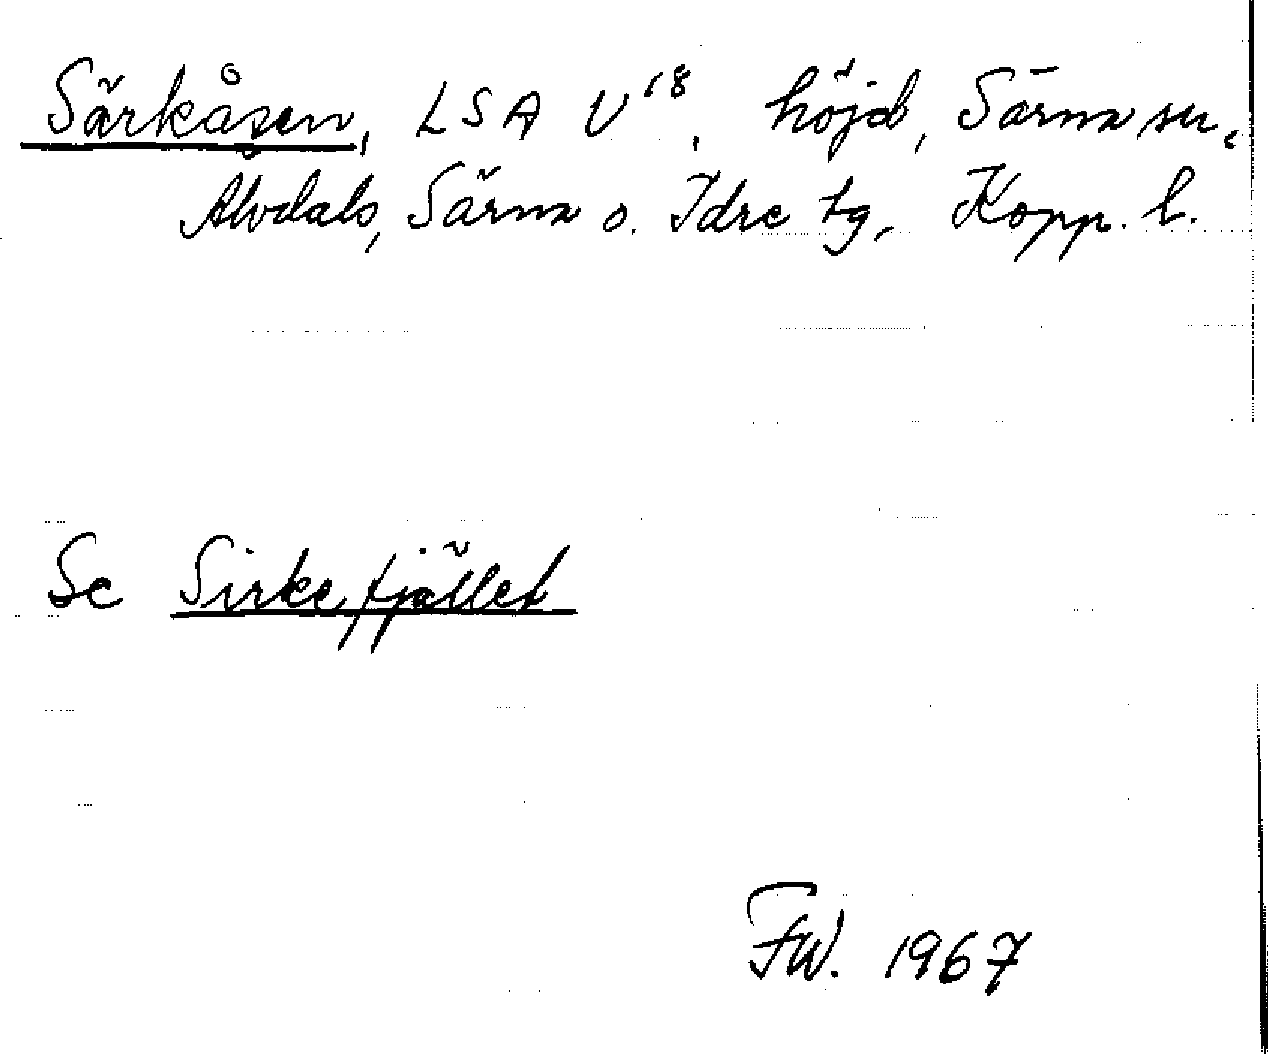 Särkåsen, LSA U¹⁸, höjd, Särna sn,
Älvdals, Särna o. Idre tg, Kopp. l.
Se Sirkefjället
FW. 1967